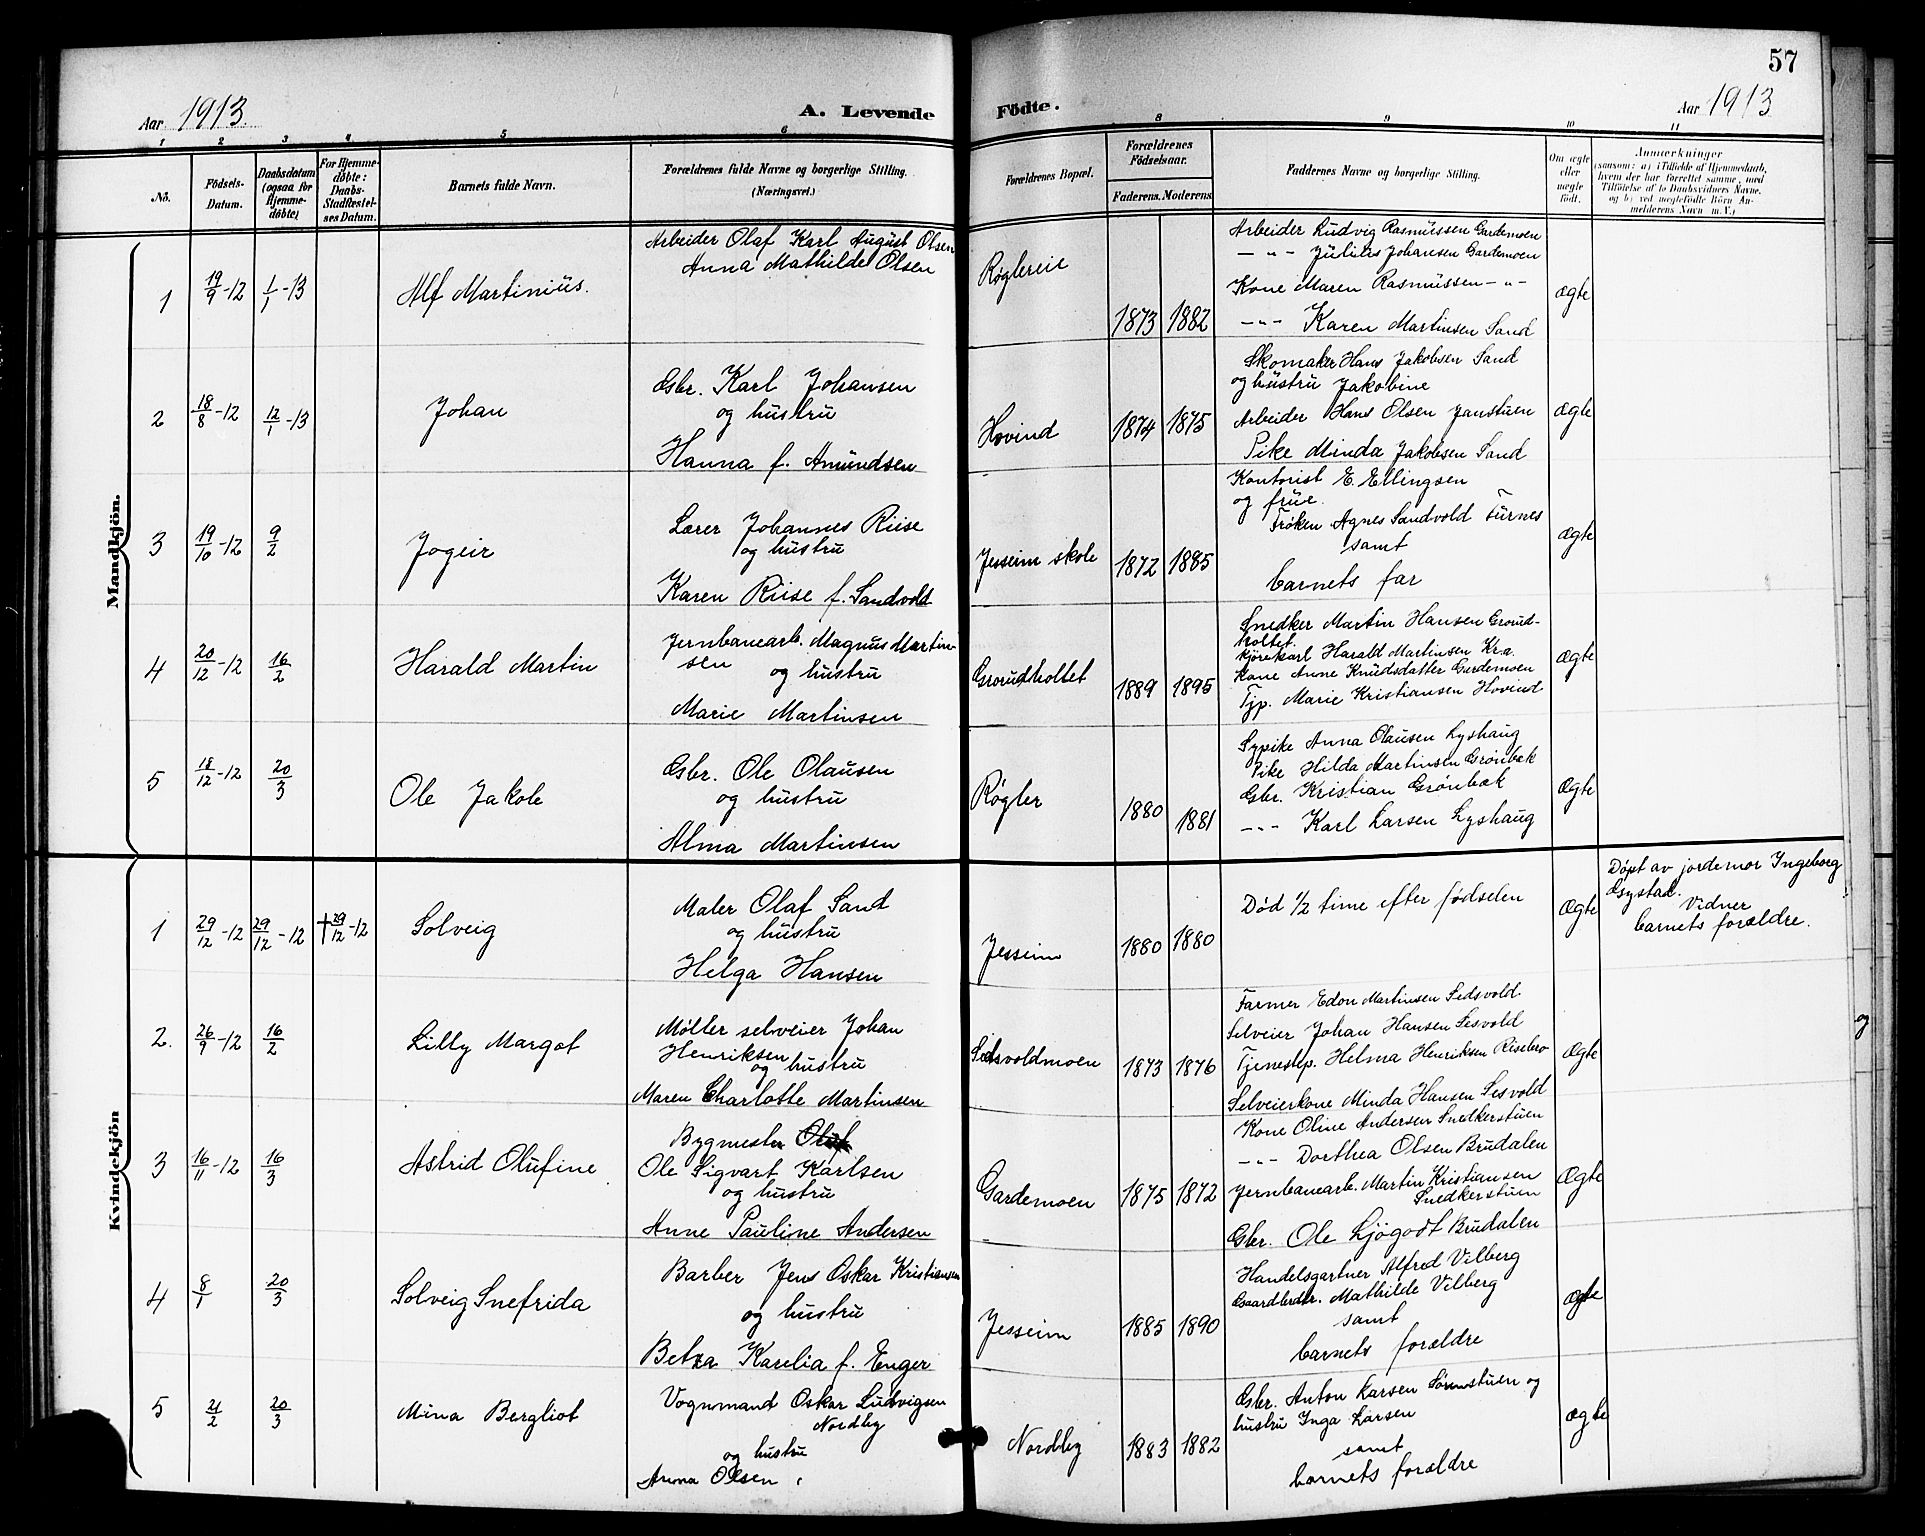 57
Aar 1913. A. Levende Födte. Aar 1913
1 2 3 4 5 6 8 9 10 11
No.
Födsels-
Datum.
Daabsdatum
(ogsaa for
Hjemme-
döbte)
For Hjemme-
döbte:
Daabs-
Stadfæstel-
ses Datum.
Barnets fulde Navn.
Forældrenes fulde Navne og borgerlige Stilling.
(Næringsvei.)
Forældrenes Bopæl.
Forældrenes
Födselsaar.
Faderens. Moderens.
Faddernes Navne og borgerlige Stilling.
Om ægte
eller
uægte
födt.
Anmærkninger
(saasom: a) i Tilfælde af Hjemmedaab,
hvem der har forrettet samme, med
Tilföielse af to Daabsvidners Navne,
og b) ved uægtefödte Börn An-
melderens Navn m. V.)
Mandkjön.
1
19/9-12
1/1-13
Alf Martinius.
Arbeider Olaf Karl August Olsen
Anna Mathilde Olsen
Røglereie
1873
1882
Arbeider Ludvig Rasmussen Gardemoen
-"- Julius Johansen Gardemoen
Kone Maren Rasmussen -"-
-"- Karen Martinsen Sand
ægte
2
18/8-12
12/1-13
Johan
Gbr. Karl Johansen
og hustru
Hanna f. Amundsen
Hovind
1874
1875
Skomaker Hans Jakobsen Sand
og hustru Jakobine
Arbeider Hans Olsen Janstuen
Pike Minda Jakobsen Sand
ægte
3
19/10-12
9/2
Jogeir
Lærer Johannes Riise
og hustru
Karen Riise f. Sandvold
Jesseim skole
1872
1885
Kontorist E. Ellingsen
og frue.
Frøken Agnes Sandvold Furnes
samt
barnets far
ægte
4
20/12-12
16/2
Harald Martin
Jernbanearb. Magnus Martin-
sen
og hustru
Marie Martinsen
Grorudholtet
1889
1895
Snedker Martin Hansen Grorud-
holtet.
Kjørekarl Harald Martinsen Kr.a.
Kone Anne Knudsdatter Gardemoen
Tjp. Marie Kristiansen Hovind
ægte
5
18/12-12
20/3
Ole Jakob
Gbr. Ole Olausen
og hustru
Alma Martinsen
Røgler
1880
1881
Sypike Anna Olausen Lyshaug
Pike Hilda Martinsen Grønbæk
Gbr. Kristian Grønbæk
-"- Karl Larsen Lyshaug
ægte
Kvindekjön
1
29/12-12
29/12-12
†29/12-12
Solveig
Maler Olaf Sand
og hustru
Helga Hansen
Jesseim
1880
1880
Død 1/2 time efter fødselen
ægte
Døpt av jordemor Ingeborg
Vidner
barnets forældre.
2.
26/9-12
16/2
Lilly Margot
Møller selveier Johan
Henriksen
og hustru
Maren Charlotte Martinsen
Sedsvoldmoen
1873
1876
Farmer Edon Martinsen Sedsvold.
Selveier Johan Hansen Sesvold
Tjenestep. Helma Henriksen Risebro
Selveierkone Minda Hansen Sesvold
ægte
3
16/11-12
16/3
Astrid Olufine
Bygmester
Ole Sigvart Karlsen
og hustru
Anne Pauline Andersen
Gardemoen
1875
1872
Kone Oline Andersen Snedkerstuen
-"- Dorthea Olsen Brudalen
Jernbanearb. Martin Kristiansen
Snedkerstuen
Gbr. Ole Ljøgodt Brudalen
ægte
4
8/1
20/3
Solveig Snefrida
Barber Jens Oskar Kristiansen
og hustru
Betza Karelia f. Enger
Jesseim
1885
1890
Handelsgartner Alfred Vilberg
Gaardbrdtr. Mathilde Vilberg
samt
barnets forældre
ægte
5
21/2
20/3
Mina Bergliot
Vognmand Oskar Ludvigsen
Nordby
og hustru
Anna Olsen
Nordby
1883
1882
Gbr. Anton Larsen Sørenstuen og
hustru Inga Larsen
samt
barnets forældre
ægte